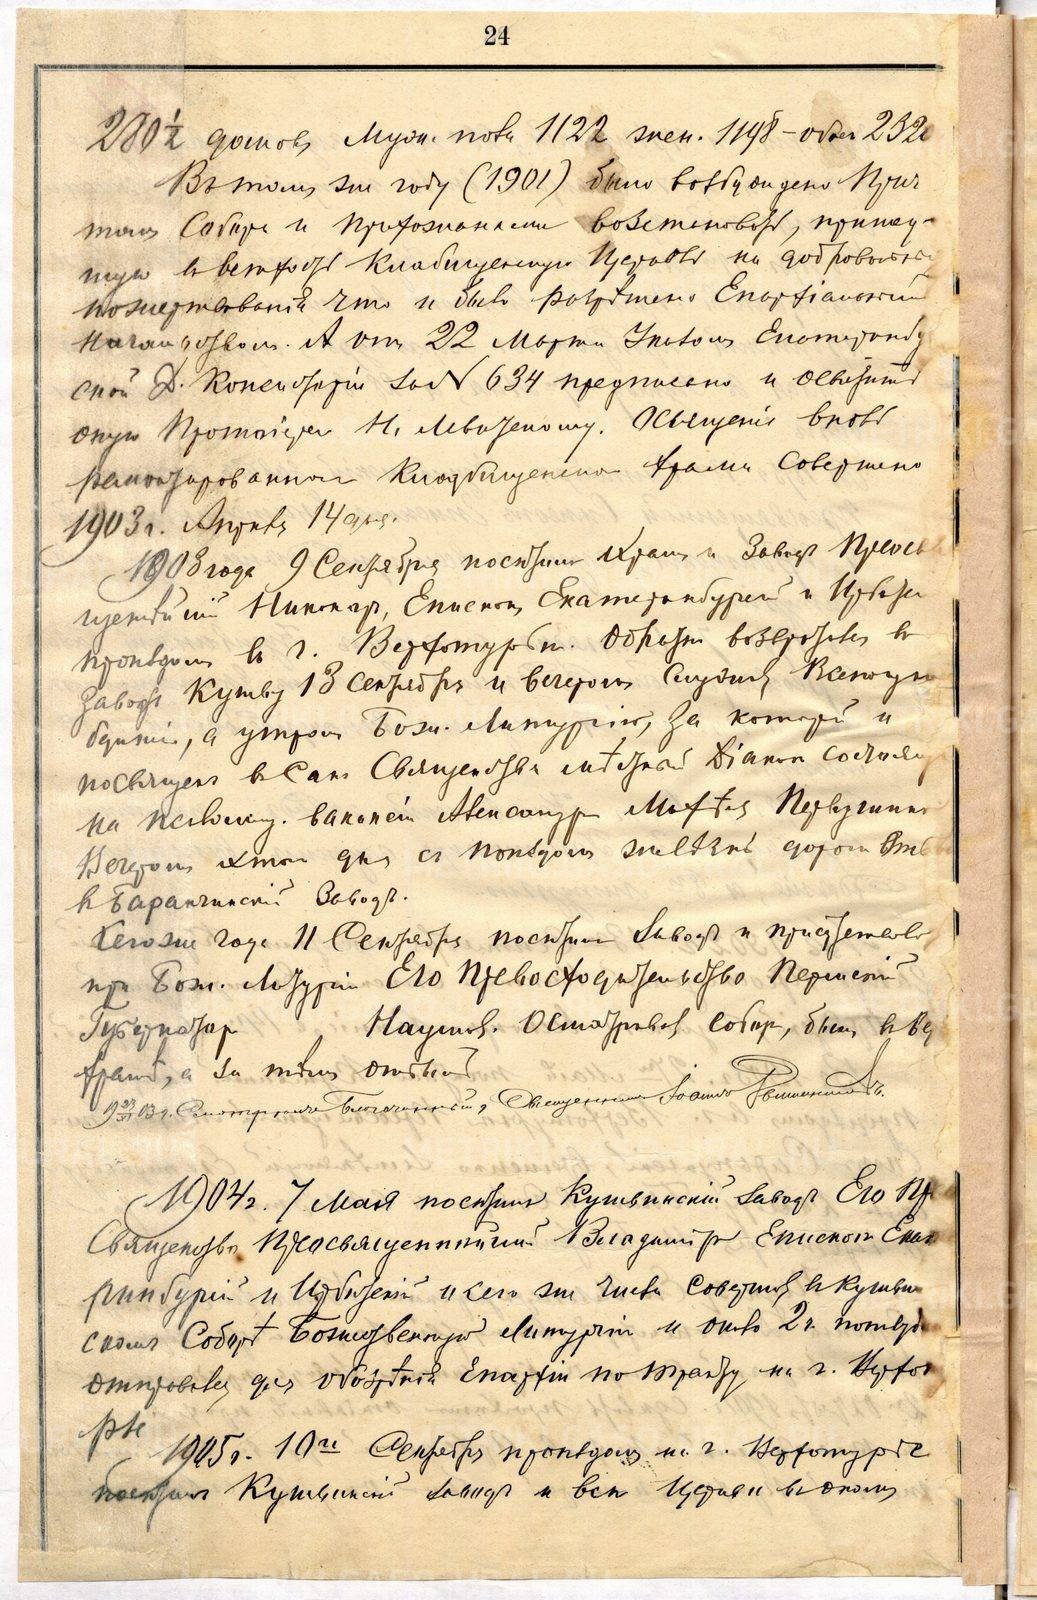 24
280½ домовъ Муж. пола 1122 жен. 1198 – обоего 232
Въ томъ же году (1901) было возбуждено Прич
томъ Собора и Прихожанами возстановить, пришед-
шую въ ветхость Кладбищенскую Церковь на добровольныя
пожертвованія что и было разрѣшено Епархіальнымъ
Начальствомъ. А отъ 22 Марта Указомъ Екатеринбур
ской Д. Консисторіи за № 634 предписано и освятить
оную Протоіерею Н. Левитскому. Освященіе вновь
ремонтированнаго Кладбищенскаго храма совершено
1903 г. Апрѣля 14 дня.
1903 года 9 Сентября посѣтилъ Храмъ и Заводъ Преосвя
щеннѣйшій Никаноръ, Епископъ Екатеринбургскій и Ирбитскій
проѣздомъ въ г. Верхотурье. Обратно возвратился въ
Заводъ Кушву 13 Сентября и вечеромъ служилъ Всенощное
бдѣніе, а утромъ Бож. Литургію, за которой и
посвященъ въ Санъ Священства мѣстный Діаконъ состоящій
на псаломщ. вакансіи Александръ Перву
Вечеромъ того дня съ поѣздомъ желѣзной дороги
въ Баранчинскій Заводъ.
Сего же года 11 Сентября посѣтилъ Заводъ и присутствовалъ
при Бож. Литургіи Его Превосходительство Пермскій
Губернаторъ Наумовъ. Осматривалъ соборъ, былъ въ
храмѣ, а за тѣмъ отбылъ
1903 г. Смотрѣлъ Благочинный, Священникъ Іоаннъ
1904 г. 7 Мая посѣтилъ Кушвинскій Заводъ Его Пр
Священство Преосвященнѣйшій Владиміръ Епископъ Екате
ринбургскій и Ирбитскій и сего же числа совершилъ въ Кушвин
скомъ Соборѣ Божественную Литургію и около 2 ч. поѣздомъ
отправился для обозрѣнія Епархіи по тракту на г. Верхоту
рье
1905 г. 10го Сентября проѣздомъ на г. Верхотурье
посѣтилъ Кушвинскій заводъ и всѣ Церкви въ ономъ